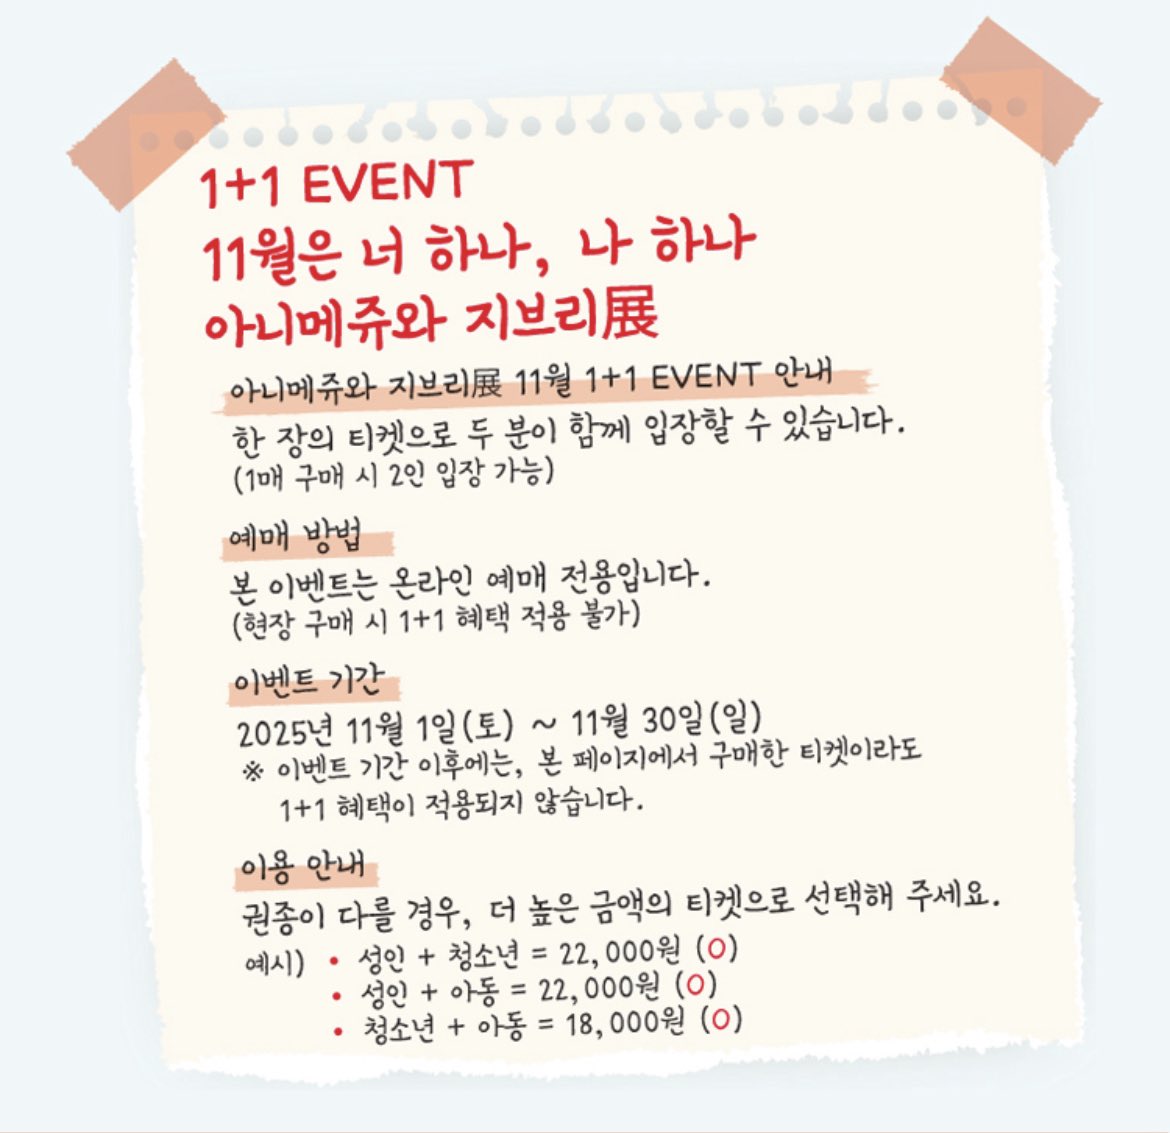 1+1 EVENT
11월은 너 하나, 나 하나
아니메쥬와 지브리展
아니메쥬와 지브리展 11월 1+1 EVENT 안내
한 장의 티켓으로 두 분이 함께 입장할 수 있습니다.
(1매 구매 시 2인 입장 가능)
예매 방법
본 이벤트는 온라인 예매 전용입니다.
(현장 구매 시 1+1 혜택 적용 불가)
이벤트 기간
2025년 11월 1일(토) ~ 11월 30일(일)
※ 이벤트 기간 이후에는, 본 페이지에서 구매한 티켓이라도
1+1 혜택이 적용되지 않습니다.
이용 안내
권종이 다를 경우, 더 높은 금액의 티켓으로 선택해 주세요.
예시) • 성인 + 청소년 = 22,000원 (O)
• 성인 + 아동 = 22,000원 (O)
• 청소년 + 아동 = 18,000원 (O)